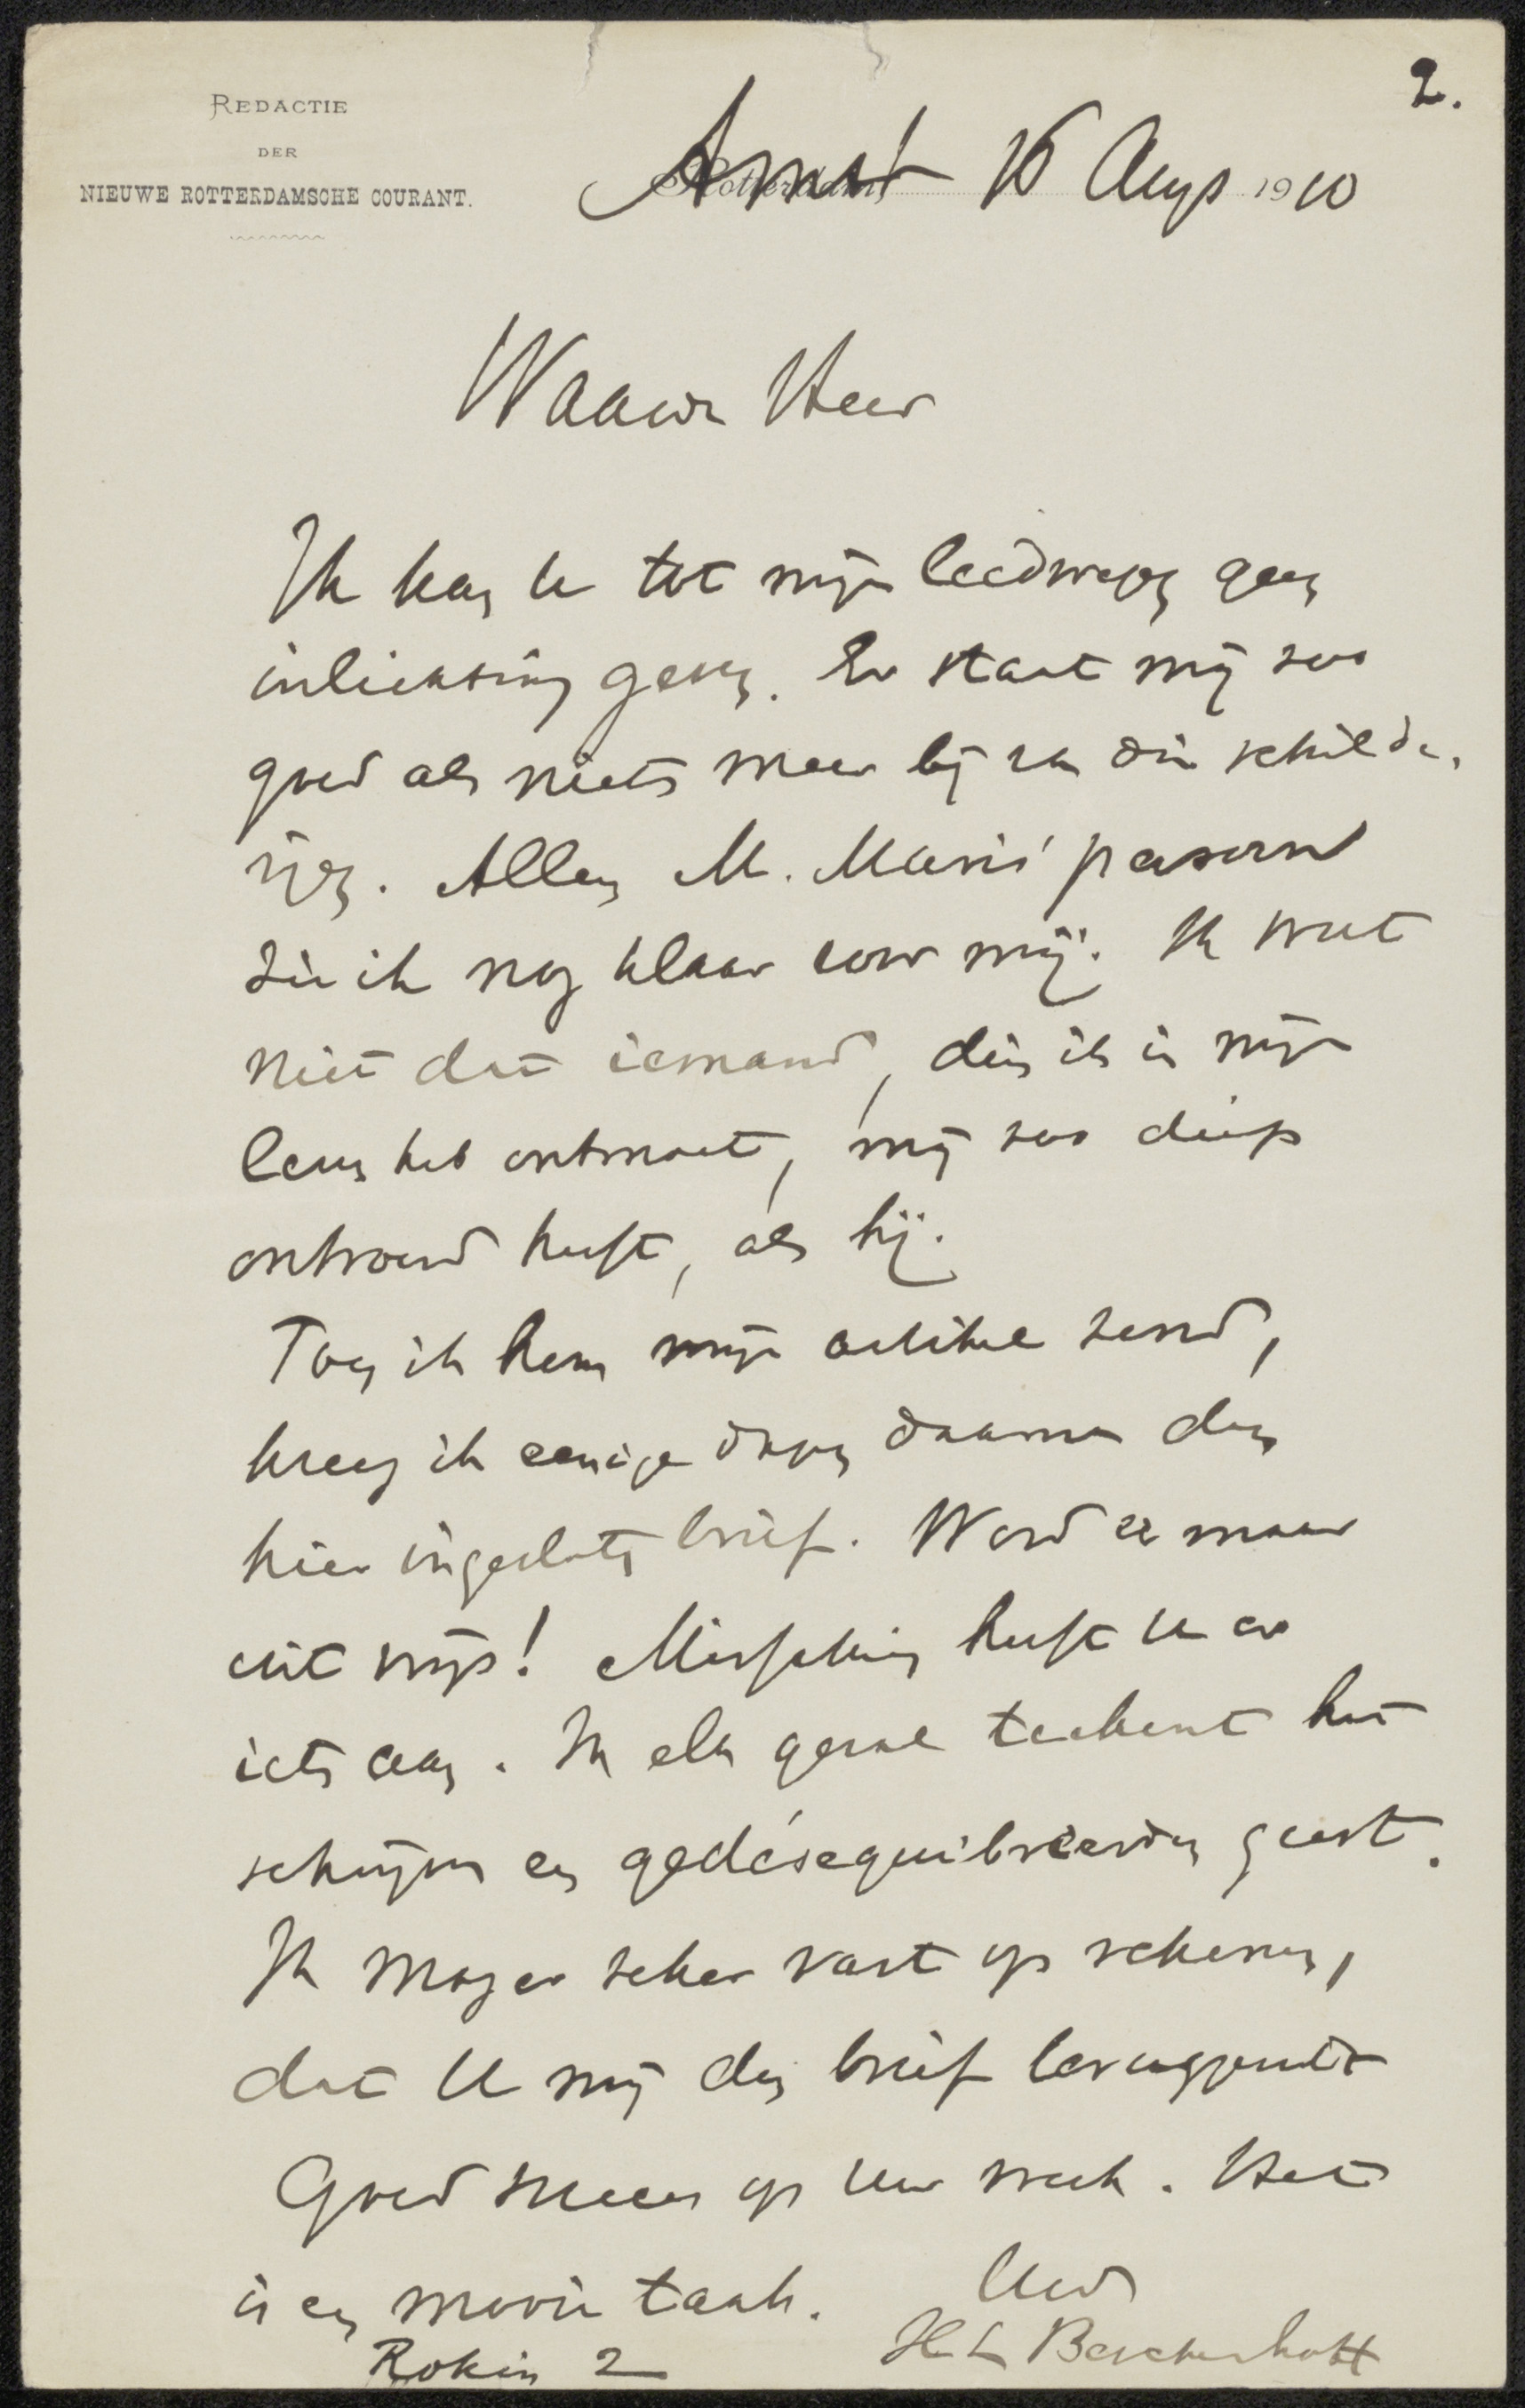 2.
REDACTIE
DER
NIEUWE ROTTERDAMSCHE COURANT.
Amst 16 Augs 1910
Waarde Heer
Ik kan U tot mijn leedwezen geen
inlichting geven. Er staat mij zoo
goed als niets meer bij van die schilde-
rijen. Alleen M. Maris' persoon
zie ik nog klaar voor mij. Ik weet
niet dat iemand, dien ik in mijn
leven heb ontmoet, mij zoo diep
ontroerd heeft, als hij.
Toen ik hem mijn artikel zond,
kreeg ik eenige dagen daarna den
hier ingesloten brief. Word er maar
uit wijs! Misschien heeft U er
iets aan. In elk geval teekent het
schrijven een gedésequibreerden geest.
Ik mag er zeker vast op rekenen,
dat U mij den brief terugzendt
Goed succes op Uw werk. Het
is een mooie taak. Uwd
Rokin 2 H L Berckenhoff